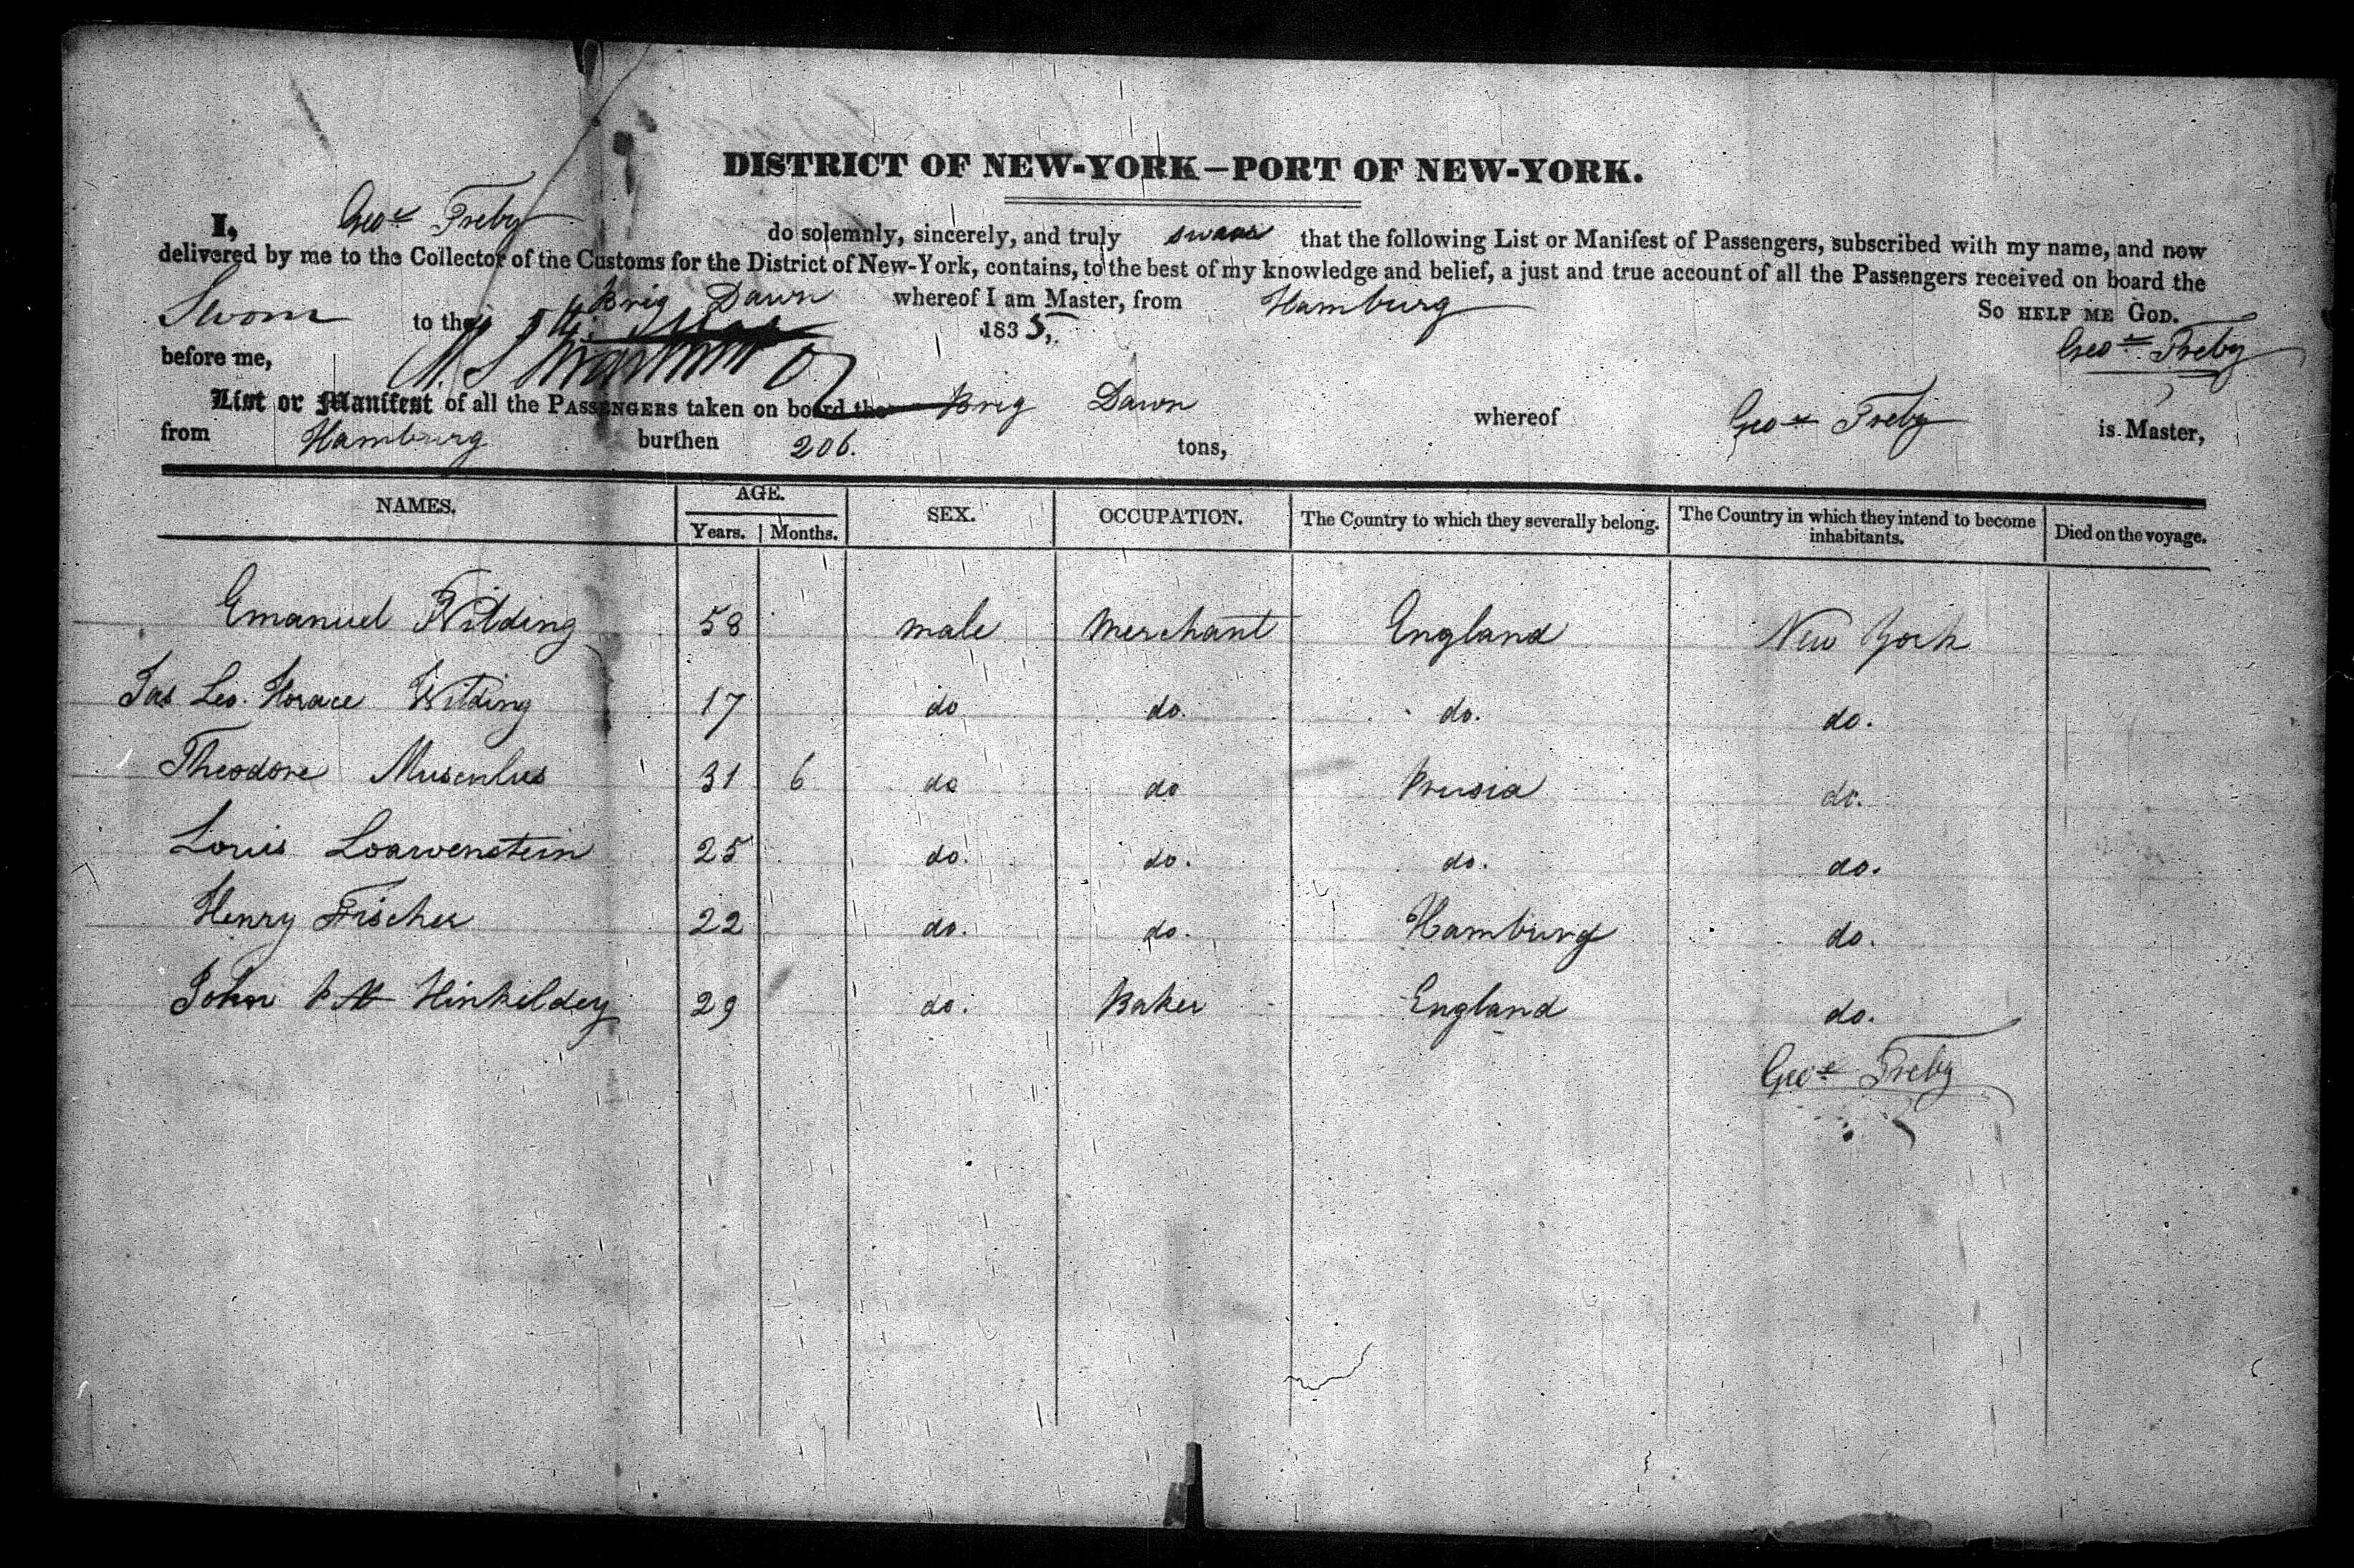 DISTRICT OF NEW-YORK—PORT OF NEW-YORK.
I, Geo.e Treby do solemnly, sincerely, and truly swear that the following List or Manifest of Passengers, subscribed with my name, and now
delivered by me to the Collector of the Customs for the District of New-York, contains, to the best of my knowledge and belief, a just and true account of all the Passengers received on board the
Brig Dawn whereof I am Master, from Hamburg So HELP ME GOD.
Sworn to the 1835,
before me, Geo.e Treby
List or Manifest of all the PASSENGERS taken on board the Brig Dawn whereof Geo.e Treby is Master,
from Hamburg burthen 206. tons,
NAMES. AGE. SEX. OCCUPATION. The Country to which they severally belong. The Country in which they intend to become inhabitants. Died on the voyage.
Years. Months.
Emanuel Wilding 58 male Merchant England New York
Jas Leo. Horace Wilding 17 do do. do. do.
Theodore Musculus 31 6 do do Prusia do.
Louis Loawenstein 25 do. do. do. do.
Henry Fischer 22 do. do. Hamburg do.
John Hinkeldey 29 do. Baker England do.
Geo.e Treby